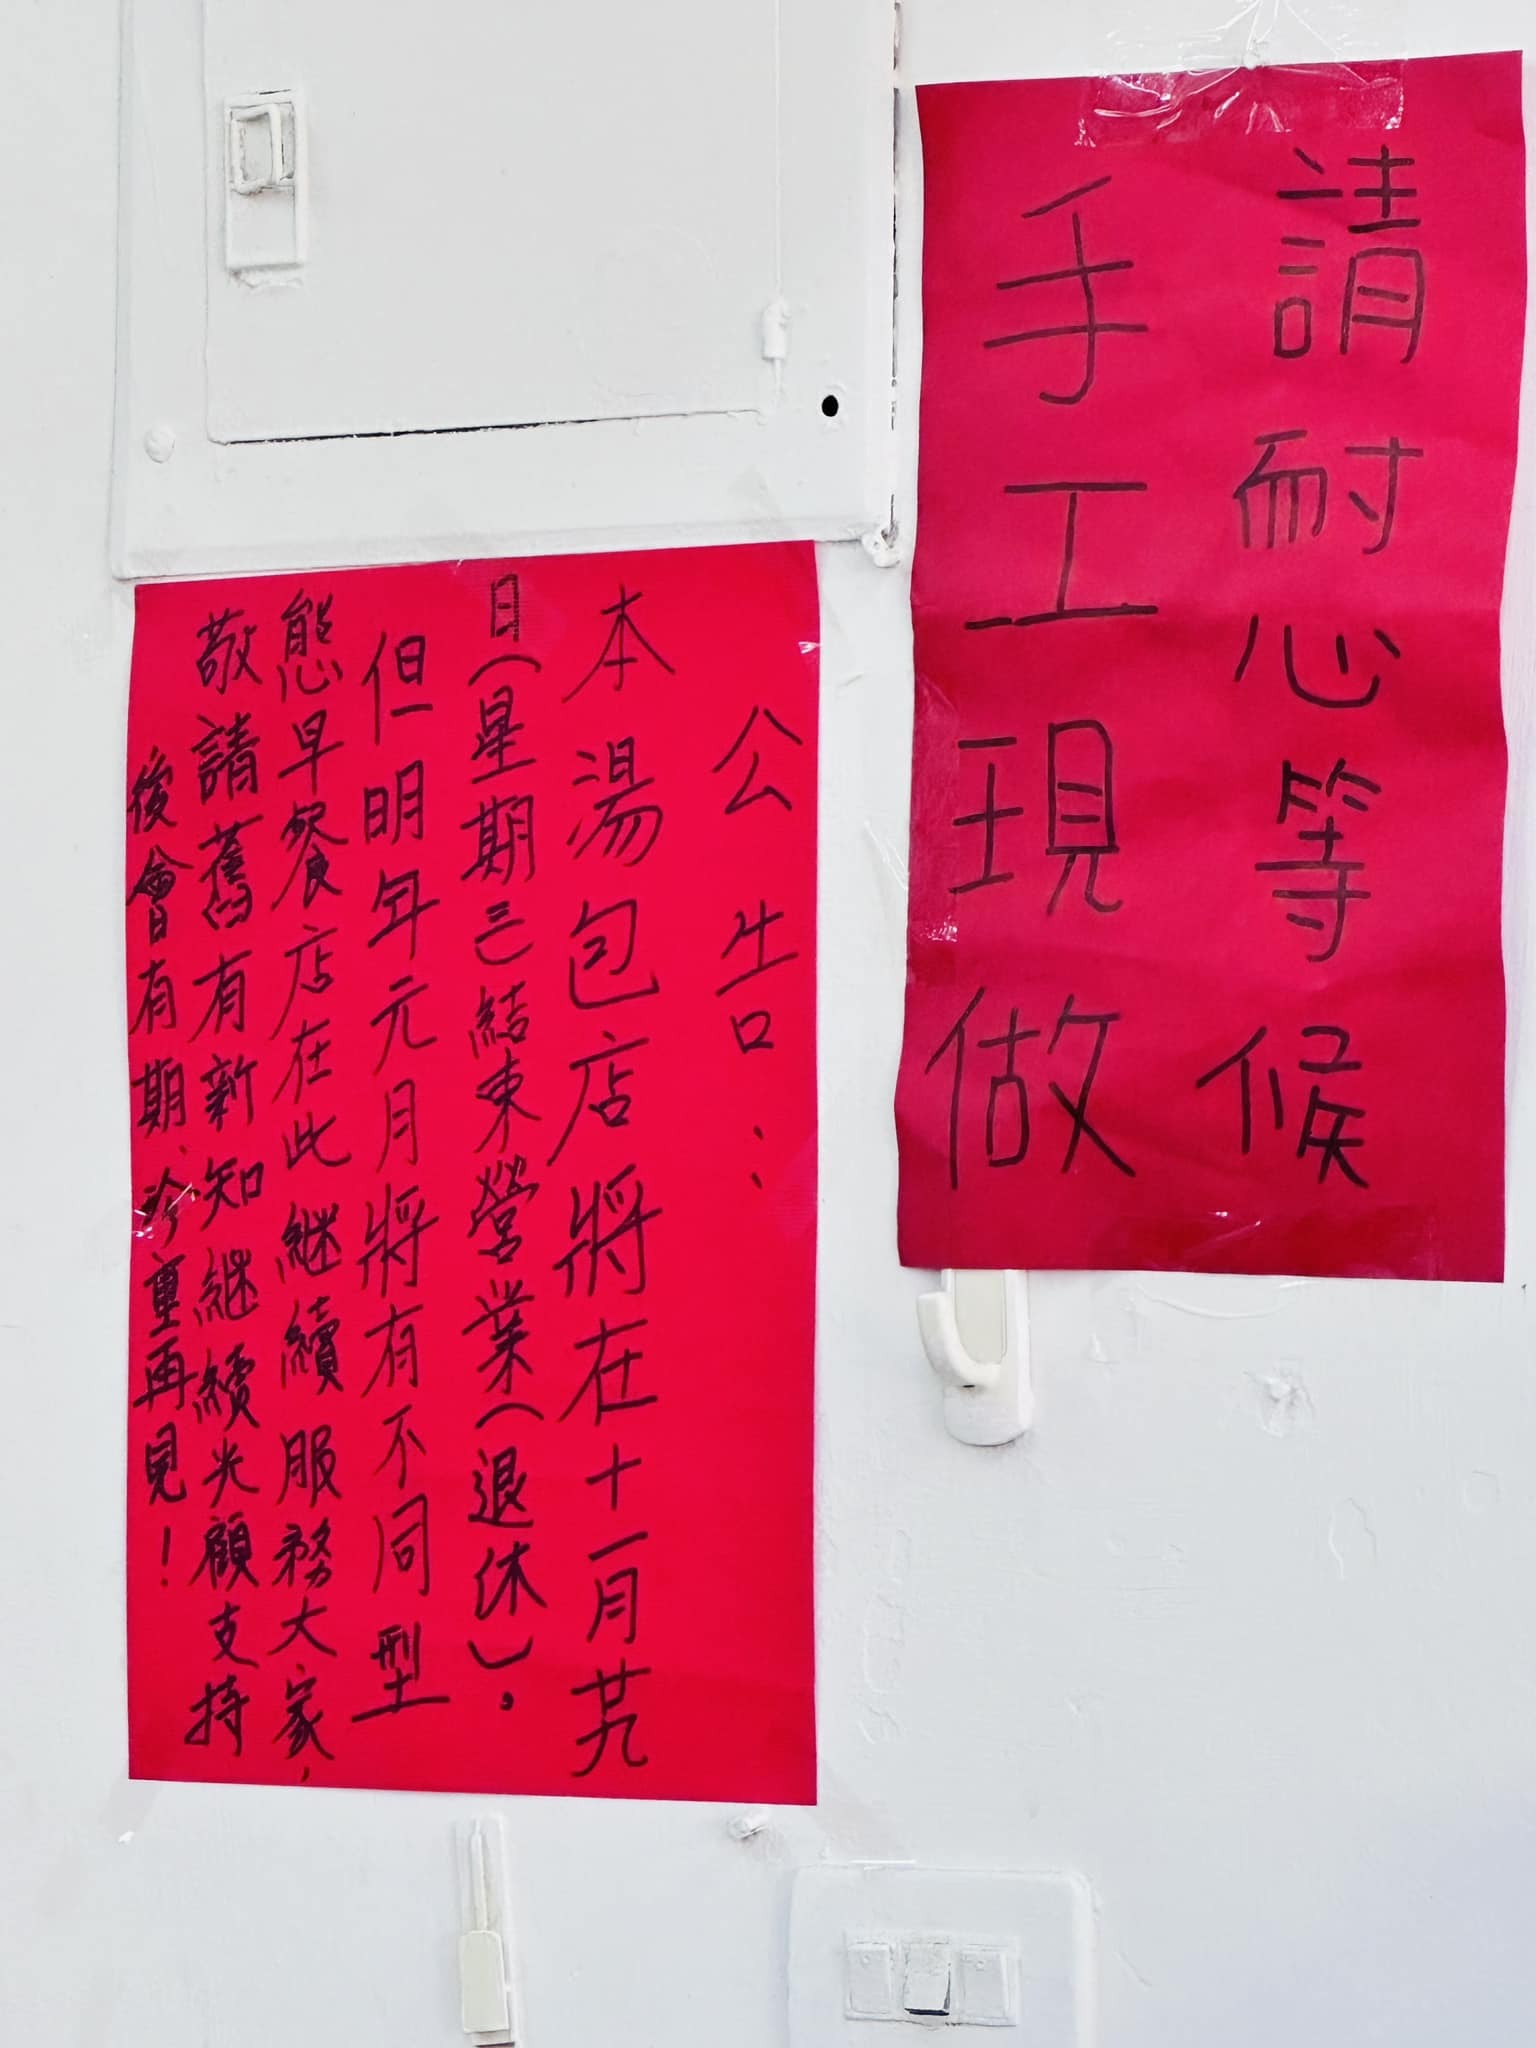 請耐心等候
手工現做
公告：
本湯包店將在十一月廿九
日(星期三)結束營業(退休)。
但明年元月將有不同型
態早餐店在此繼續服務大家，
敬請舊有新知繼續光顧支持
後會有期、珍重再見！